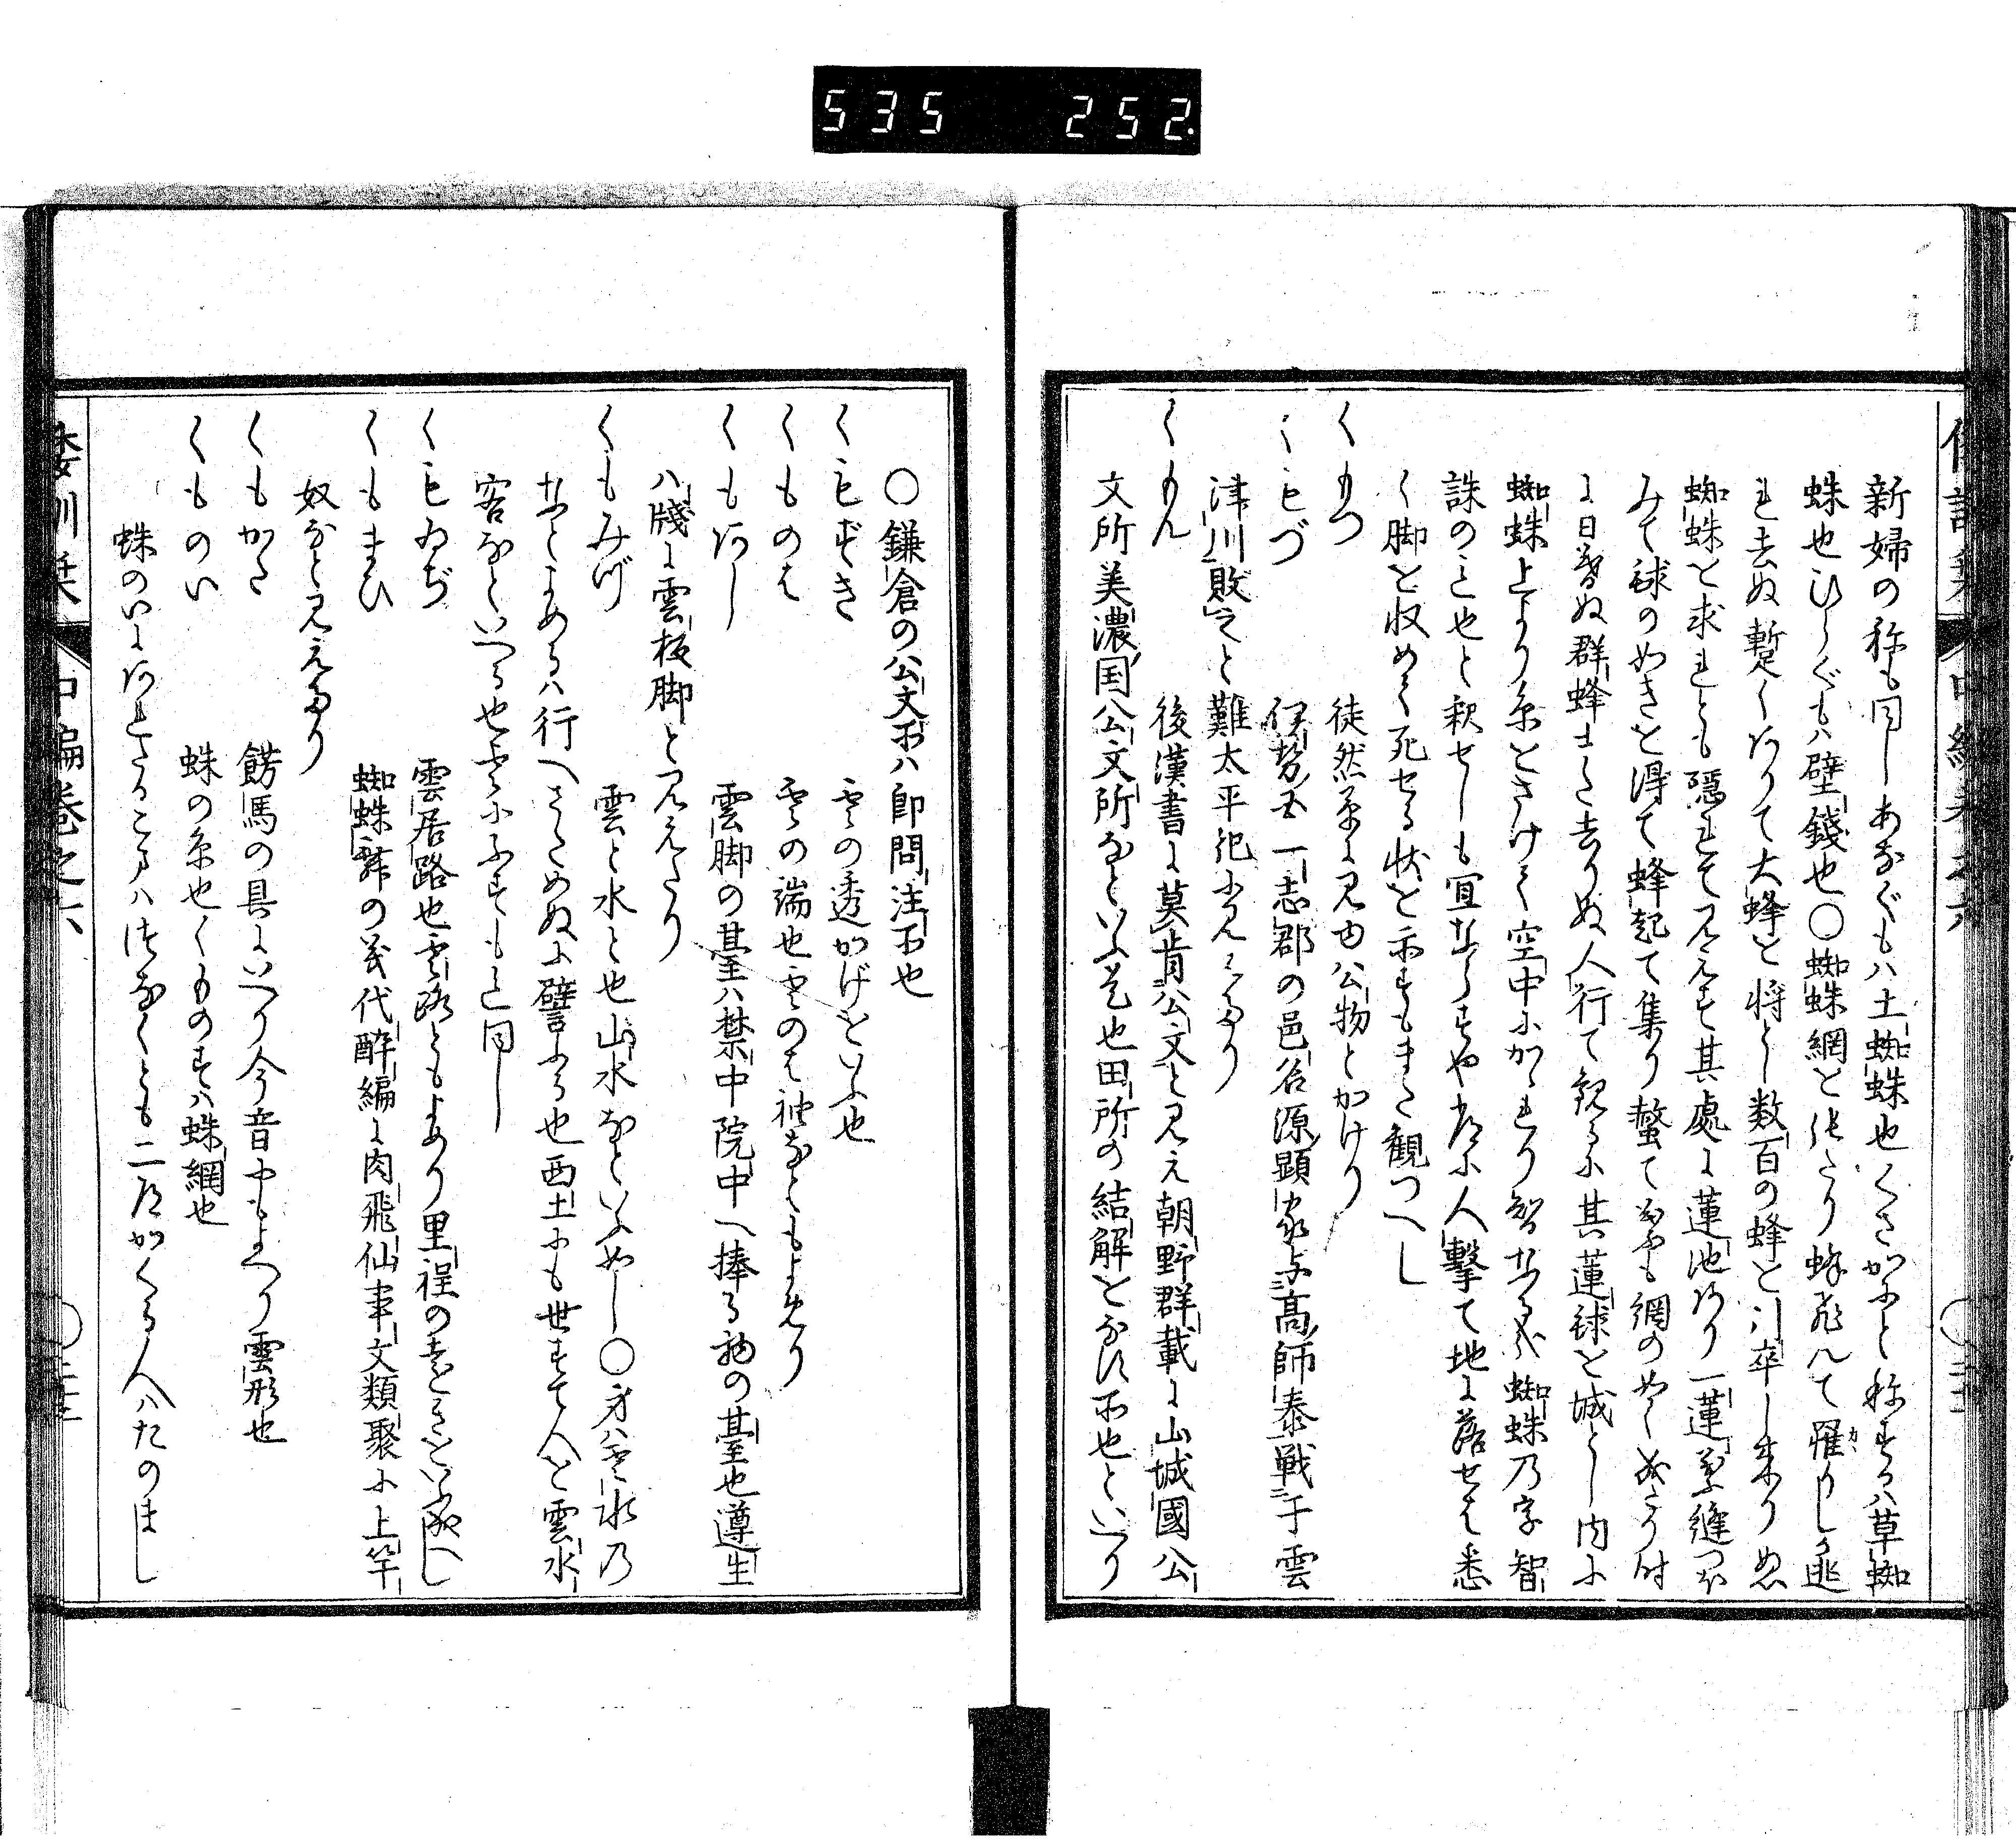 535 252.
新婦の称も同しあなぐもハ土蜘蛛也くさがにと称するハ草蜘
蛛也ひらぐもハ壁錢也〇蜘蛛網を張たり蜂飛んて罹りしか逃
れ去ぬ暫くありて大蜂を将とし数百の蜂を引卒し来りぬ
蜘蛛を求れとも隠れて見えす其處に蓮池あり一蓮葉縫つほ
みて毬の如きを得て蜂起て集り螫て
に日暮ぬ群蜂また去りぬ人行て観るに其蓮毬を城とし内に
蜘蛛上より糸をさけて空中にかゝれり智なる哉蜘蛛乃字智
誅のこ也と釈せしも宜ならすや凡に人撃て地に落せは悉
く脚を収めて死せる状を示すもまた観つへし
くもつ 徒然草に見ゆ公物とかけり
くもづ 伊勢国一志郡の邑名源顕家与高師泰戦于雲
津川敗之と難太平記に見えたり
くもん 後漢書に莫肯公文と見え朝野群載に山城國公
文所美濃国公文所なといふ是也田所の結解をなす所也といへり
〇鎌倉の公文所ハ即問注所也
くもずき 雲の透かげをいふ也
くものは 雲の端也雲のは袖なともよめり
くもあし 雲脚の基ハ禁中院中へ捧る物の臺也遵生
八牋に雲板脚と見えたり
くもみづ 雲と水と也山水なといふ如し〇身ハ雲水乃
なとよめるハ行へさためぬに譬ふる也西土にも世すて人を雲水
客なといへる也雲にふすも同し
くもゐぢ 雲居路也雲路ともよめり里程の遠きをいふ成へし
くもまひ 蜘蛛舞の義代酔編に肉飛仙事文類聚に上竿
奴なと見えたり
くもかた 餝馬の具にいへり今音にもよへり雲形也
くものい 蛛の糸也くものすハ蛛網也
蛛のいにあれたるこまハつなくとも二道かくる人ハたのまし
倭訓栞 中編巻之六